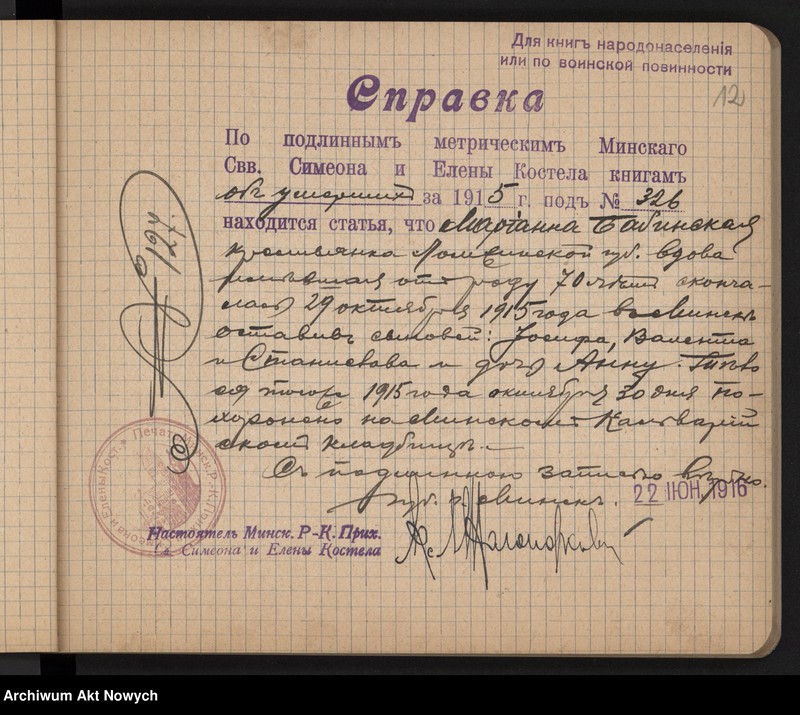 Для книгъ народонаселенія
или по воинской повинности
12
Справка
По подлиннымъ метрическимъ Минскаго
Свв. Симеона и Елены Костела книгамъ
объ умершихъ за 1915 г. подъ № 326
находится статья, что Маріанна Бабинская
крестьянка Ломжинской губ. вдова
имѣвшая отъ роду 70 лѣтъ сконча-
лась 29 октября 1915 года въ Минскѣ
оставивъ сыновей: Іосифа, Валентія
и Станислава и дочь Анну. Тѣло
ея того 1915 года октября 30 дня по-
хоронено на Минскомъ Кальварій
скомъ кладбищѣ.
Съ подлинною записью вѣрно.
Губ. г. Минскъ. 22 ІЮН. 1916
Настоятель Минск. Р-К. Прих.
Св Симеона и Елены Костела
Кс.
Archiwum Akt Nowych